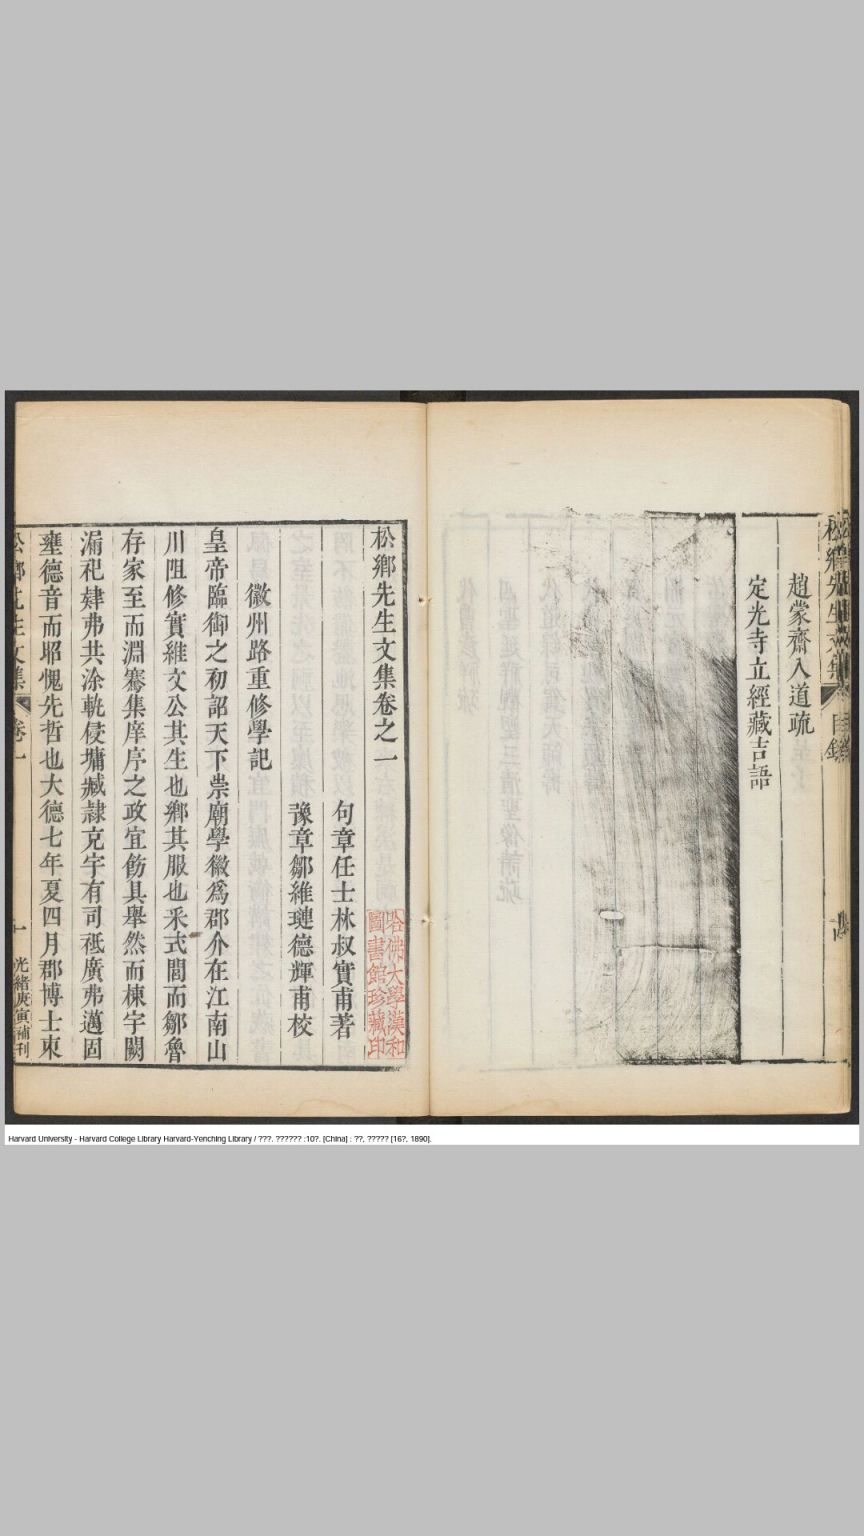 松鄉先生文集
目錄
趙蒙齋入道疏
定光寺立經藏吉語
松鄉先生文集卷之一
句章任士林叔實甫著
豫章鄒維璉德輝甫校
哈佛大學漢和
圖書館珍藏印
徽州路重修學記
皇帝臨御之初詔天下崇廟學徽爲郡介在江南山
川阻修實維文公其生也鄉其服也釆式閭而鄒魯
存家至而淵騫集庠序之政宜飭具舉然而棟宇闕
漏祀肄弗共涂軌侵墉臧隷充宇有司祗廣弗邁固
壅德音而昭愧先哲也大德七年夏四月郡博士東
松鄉先生文集
卷一
一
光緒庚寅補刊
Harvard University - Harvard College Library Harvard-Yenching Library / ???. ?????? :10?. [China] : ??, ????? [16?, 1890].